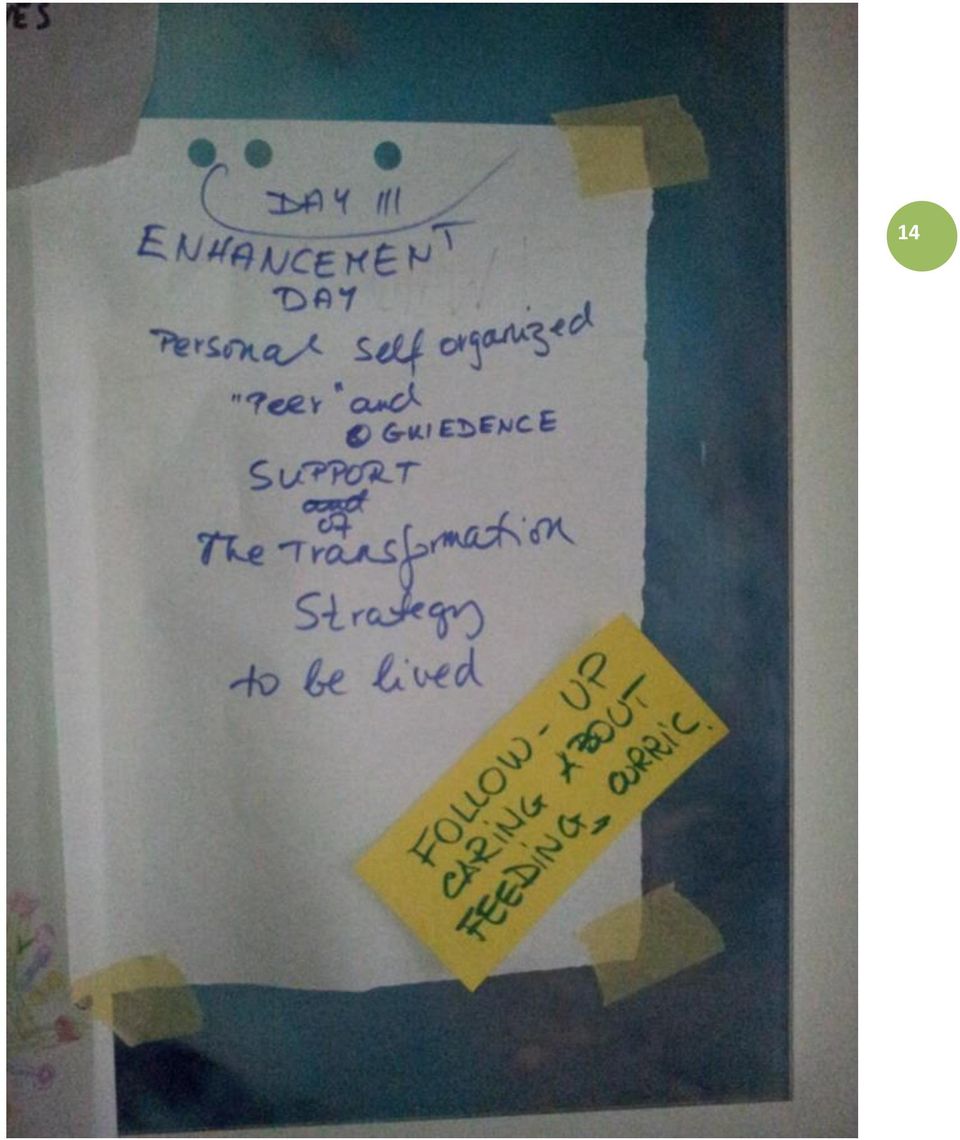 ES
DAY III
ENHANCEMENT
DAY
Personal self organized
"Peer" and
GUIEDENCE
SUPPORT
and
of
The Transformation
Strategy
to be lived
FOLLOW-UP
CARING ABOUT
FEEDING → CURRIC.
14